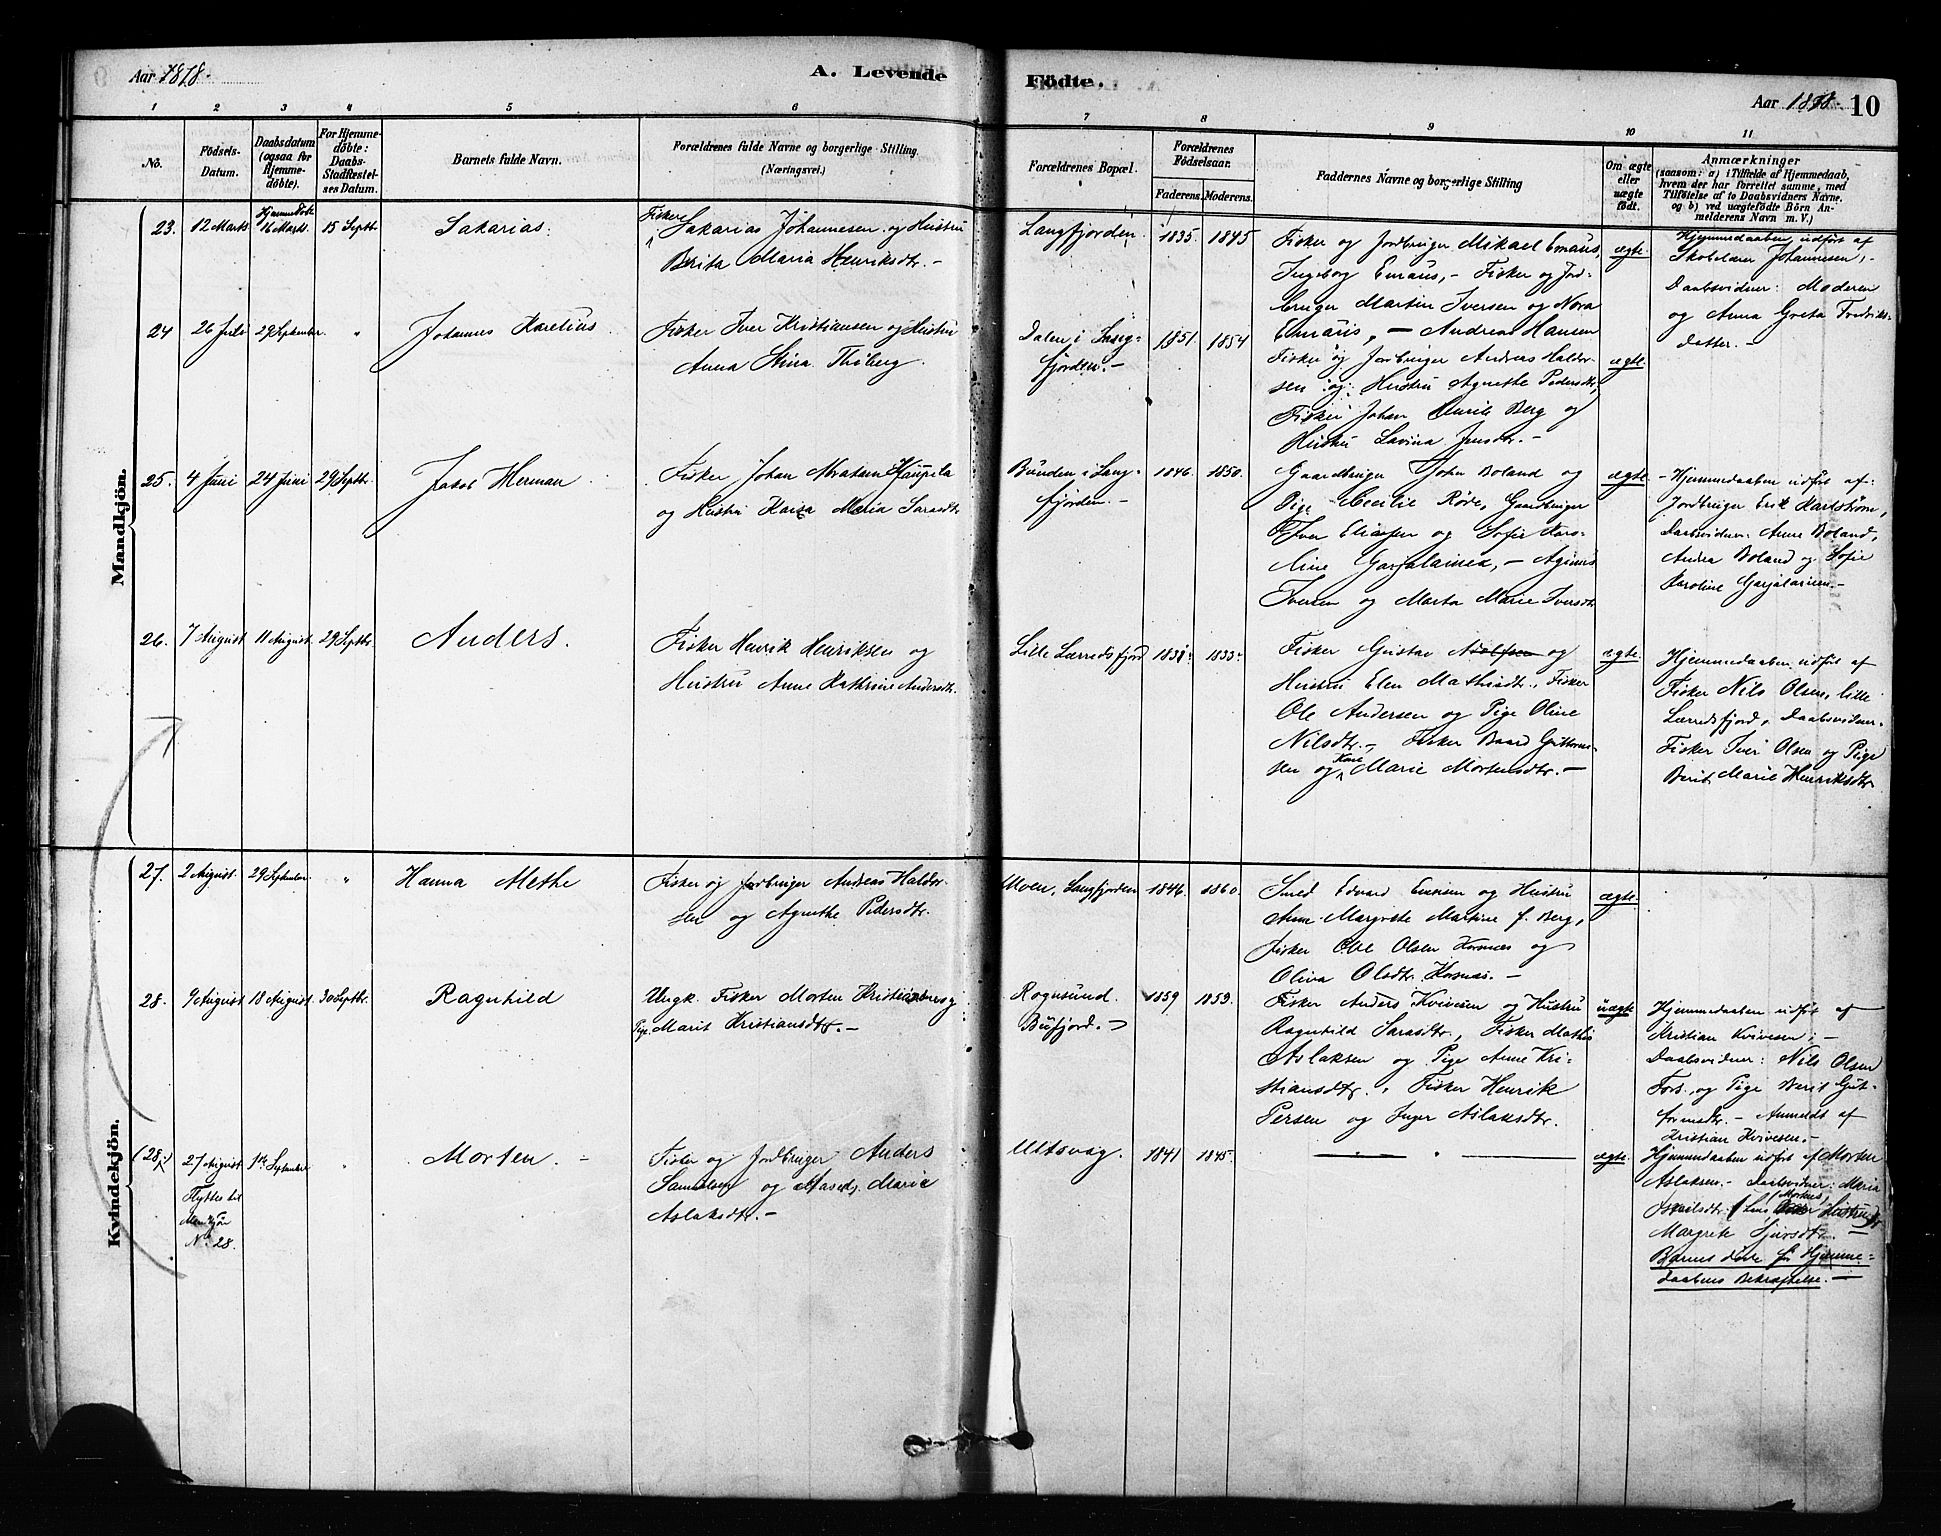 Aar 1878.
A. Levende
Födte.
Aar 1878.
10
1 2 3 4 5 6 7 8 9 10 11
No.
Födsels-Datum.
Daabsdatum (ogsaa for Hjemmedöbte).
For Hjemmedöbte: Daabs-Stadfæstelses Datum.
Barnets fulde Navn.
Forældrenes fulde Navne og borgerlige Stilling.
(Næringsvei.)
Forældrenes Bopæl.
Forældrenes Födselsaar.
Faderens. Moderens.
Faddernes Navne og borgerlige Stilling
Om ægte eller uægte födt.
Anmærkninger
(saasom: a) i Tilfælde af Hjemmedaab,
hvem der har forrettet samme, med
Tilföielse af to Daabsvidners Navne.
og b) ved uægtefödte Börn Anmelderens Navn m. V.)
Mandkjön.
23. 12 Marts Hjemmedöbt 16 Marts. 15 Septbr. Sakarias.
Fisker Sakarias Johannesen og Hustru
Berita Maria Henriksdtr. -
Langfjorden. 1835. 1845
Fisker og Jordbruger Mikael Emaus,
Ingeborg Emaus, - Fisker og Jord-
bruger Martin Iversen og Nora
Emaus, - Andreas Hansen
ægte.
Hjemmedaaben udført af
Skolelærer Johannesen, -
Daabsvidner: Moderen
og Anna Greta Fredriks-
datter. -
24 26 Juli 29 September " Johannes Karelius
Fisker Iver Kristiansen og Hustru
Anna Stina Thåberg.
Dalen i Lang-
fjorden. - 1851. 1854
Fisker og Jordbruger Andreas Haldor-
sen og Hustru Agnethe Pedersdtr,
Fisker Johan Berg og
Hustru Lavina Jensdtr. -
ægte.
25. 4 Juni 24 Juni 29 Septbr. Jakob Herman
Fisker Johan Haupila
og Hustru Kaisa Maria Sarasdtr
Bunden i Lang-
fjorden. - 1846. 1850.
Gaardbruger John Boland og
Pige Cecilie Røde, Gaardbruger
Iver Eliassen og Sofie Karo-
line Garjalainen, -
Iversen og Marta Marie Iversdtr
ægte.
- Hjemmedaaben udført af:
Jordbruger Erik Karlstrøm,
Daabsvidner: Anne Boland,
Andrea Boland og Sofie
Karoline Garjalainen. -
26. 7 August 11 August. 29 Septbr. Anders.
Fisker Henrik Henriksen og
Hustru Anne Kathrine Andersdtr.
Lille Lærredsfjord 1833.
Fisker Gustav Adolfsen og
Hustru Elen Mathisdtr., Fisker
Ole Andersen og Pige Oline
Nilsdtr. - Fisker Baard Guttorm-
sen og Kone Marie Mortensdtr. -
ægte.
Hjemmedaaben udført af
Fisker Nils Olsen, lille
Lærredsfjord, Daabsvidner:
Fisker Iver Olsen og Pige
Berit Marie Henriksdtr.
Kvindekjön.
27. 2 August. 29 September " Hanna Methe
Fisker og Jordbruger Andreas Haldor-
sen og Agnethe Pedersdtr.
Moen, Langfjorden 1846. 1860.
Smed Edvard og Hustru
Anne Margrete Martine f. Berg,
Fisker Ole Olsen Kornæs og
Oliva Olsdtr. Kornæs. -
ægte.
28. 9 August 18 August. 30 Septbr. Ragnhild
Ungk. Fisker Morten Kristiansen og
Pige Marit Kristiansdtr. -
Rognsund.
Bufjord. - 1859 1853.
Fisker Anders Kvivesen og Hustru
Ragnhild Sarasdtr, Fisker Mathis
Aslaksen og Pige Anne Kri-
stiansdtr., Fisker Henrik
Persen og Inger Aslaksdtr.
uægte
Hjemmedaaben udført af
Kristian Kvivesen; -
Daabsvidner: Nils Olsen
Fors, og Pige Berit Gut-
tormsdtr. - Anmeldt af
Kristian Kvivesen. -
(28.) 27 August 1ste September " Morten. -
Flyttes til
Mandkjön
No 28.
Fisker og Jordbruger Anders
Samuelsen og Marie
Aslaksdtr. -
Ultsvag. 1841 1845.
— " —
ægte.
Hjemmedaaben udført af Morten
Aslaksen. - Daabsvidner: Maria
Margrete Sjursdtr. -
Barnet døde før Hjemme-
daabens Bekræftelse. -